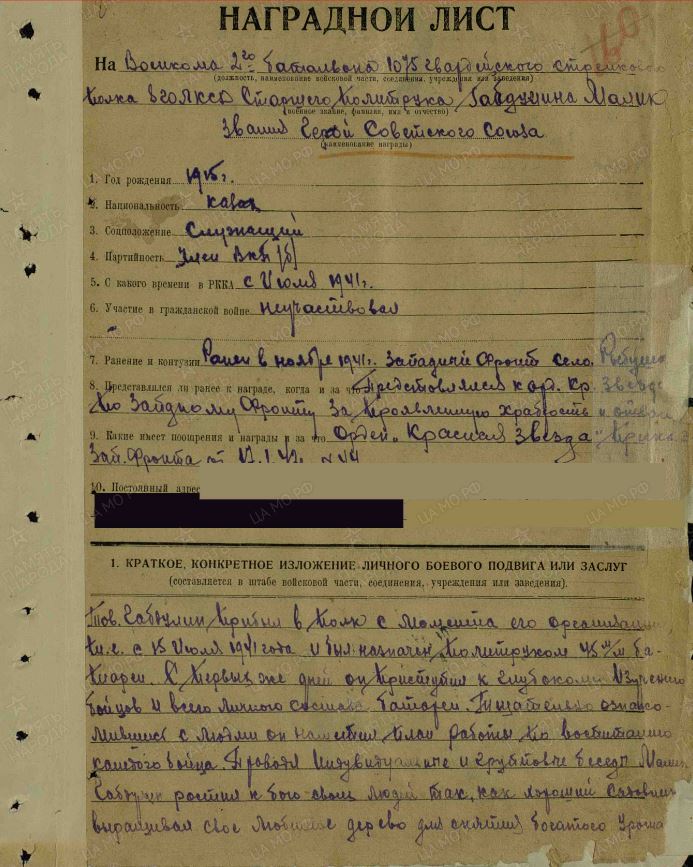 НАГРАДНОЙ ЛИСТ
На Военкома 2го батальона 1075 гвардейского стрелкового
(должность, наименование войсковой части, соединения, учреждения или заведения)
полка Старшего Политрука Габдулина Малик
(военное звание, фамилия, имя и отчество)
звания Герой Советского Союза
(наименование награды)
1. Год рождения 1915г.
2. Национальность казах
3. Соцположение Служащий
4. Партийность Член ВКП(б)
5. С какого времени в РККА с Июля 1941г.
6. Участие в гражданской войне неучаствовал
7. Ранение и контузии Ранен в ноябре 1941г. Западний Фронт село
8. Представлялся ли ранее к награде, когда и за что Представлялся к ор. Кр. Звезда
по Западному Фронту за проявленную храбрость и
9. Какие имеет поощрения и награды и за что Орден "Красная Звезда"
Зап. Фронта от 42г.
10. Постоянный адрес
1. КРАТКОЕ, КОНКРЕТНОЕ ИЗЛОЖЕНИЕ ЛИЧНОГО БОЕВОГО ПОДВИГА ИЛИ ЗАСЛУГ
(составляется в штабе войсковой части, соединения, учреждения или заведения).
Тов. Габдулин прибыл в полк с момента его организации
т.е. с 15 Июля 1941 года и был назначен политруком 45 м/м ба-
тареи. С первых же дней он приступил к глубокому Изучению
бойцов и всего личного состава батареи. Тщательно ознако-
мившись с людьми он наметил план работы по воспитанию
каждого бойца. Проводя Индувидуальные и групповые беседы Малик
Габдулин растил к бою своих людей так, как хороший садовник
выращивал свое любимое дерево для снятия богатого урожая
ЦА МО РФ
ПАМЯТЬ НАРОДА